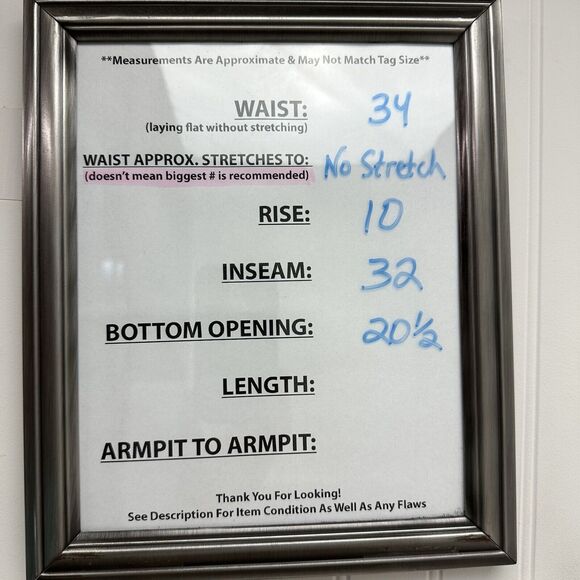 **Measurements Are Approximate & May Not Match Tag Size**
WAIST: 34
(laying flat without stretching)
WAIST APPROX. STRETCHES TO: No Stretch
(doesn't mean biggest # is recommended)
RISE: 10
INSEAM: 32
BOTTOM OPENING: 20 1/2
LENGTH:
ARMPIT TO ARMPIT:
Thank You For Looking!
See Description For Item Condition As Well As Any Flaws